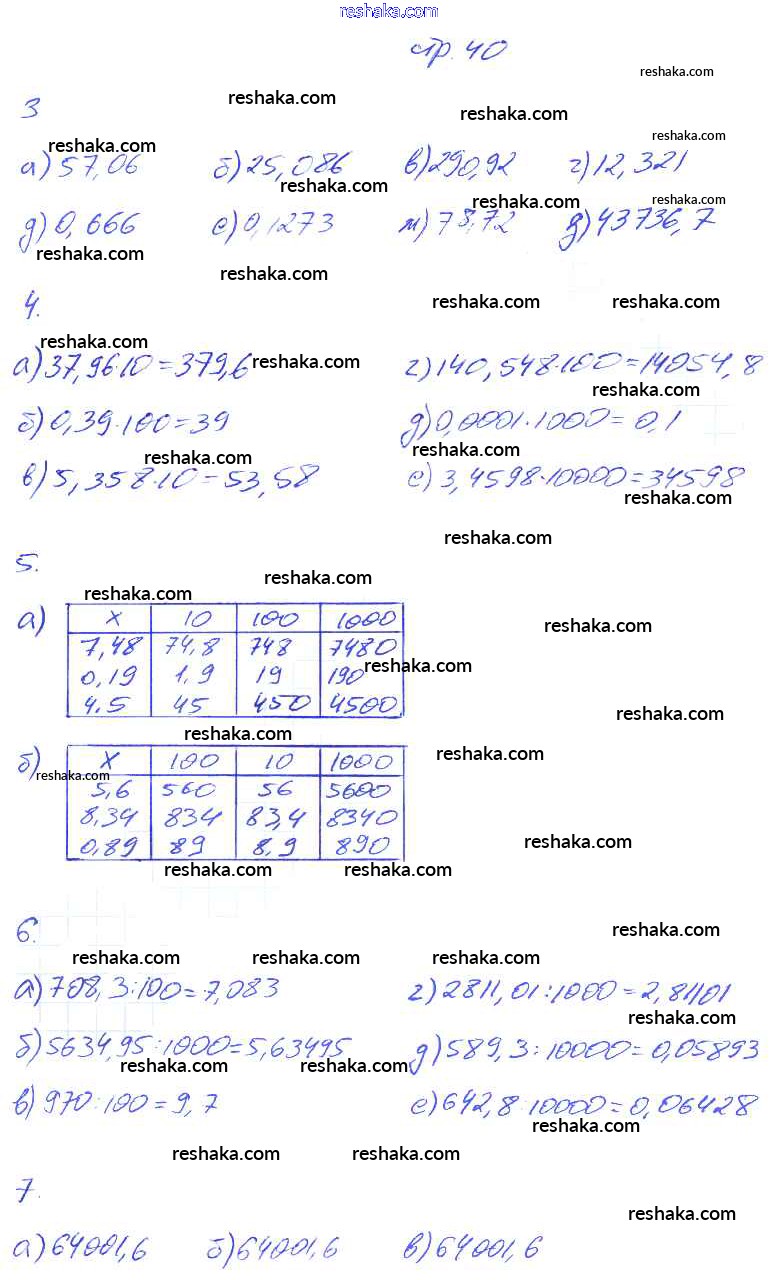 reshaka.com
стр. 40
reshaka.com
3
reshaka.com
reshaka.com
reshaka.com
reshaka.com
а) 57,06 б) 25,086 в) 290,92 г) 12,321
reshaka.com
reshaka.com
reshaka.com
д) 0,666 е) 0,1273 м) 78,72 д) 43736,7
reshaka.com
reshaka.com
4.
reshaka.com
reshaka.com
reshaka.com
а) 37,96·10=379,6 г) 140,548·100=14054,8
reshaka.com
reshaka.com
б) 0,39·100=39 д) 0,0001·1000=0,1
reshaka.com
reshaka.com
в) 5,358·10=53,58 е) 3,4598·10000=34598
reshaka.com
reshaka.com
5.
reshaka.com
reshaka.com
а) х 10 100 1000
reshaka.com
7,48 74,8 748 7480
reshaka.com
0,19 1,9 19 190
4.5 45 450 4500
reshaka.com
reshaka.com
reshaka.com
б) х 100 10 1000
reshaka.com
5,6 560 56 5600
8,34 834 83,4 8340
reshaka.com
0,89 89 8,9 890
reshaka.com
reshaka.com
6.
reshaka.com
reshaka.com
reshaka.com
reshaka.com
а) 708,3:100=7,083 г) 2811,01:1000=2,81101
reshaka.com
б) 5634,95:1000=5,63495 д) 589,3:10000=0,05893
reshaka.com
reshaka.com
в) 970:100=9,7 е) 642,8:10000=0,06428
reshaka.com
reshaka.com
reshaka.com
7.
reshaka.com
а) 64001,6 б) 64001,6 в) 64001,6